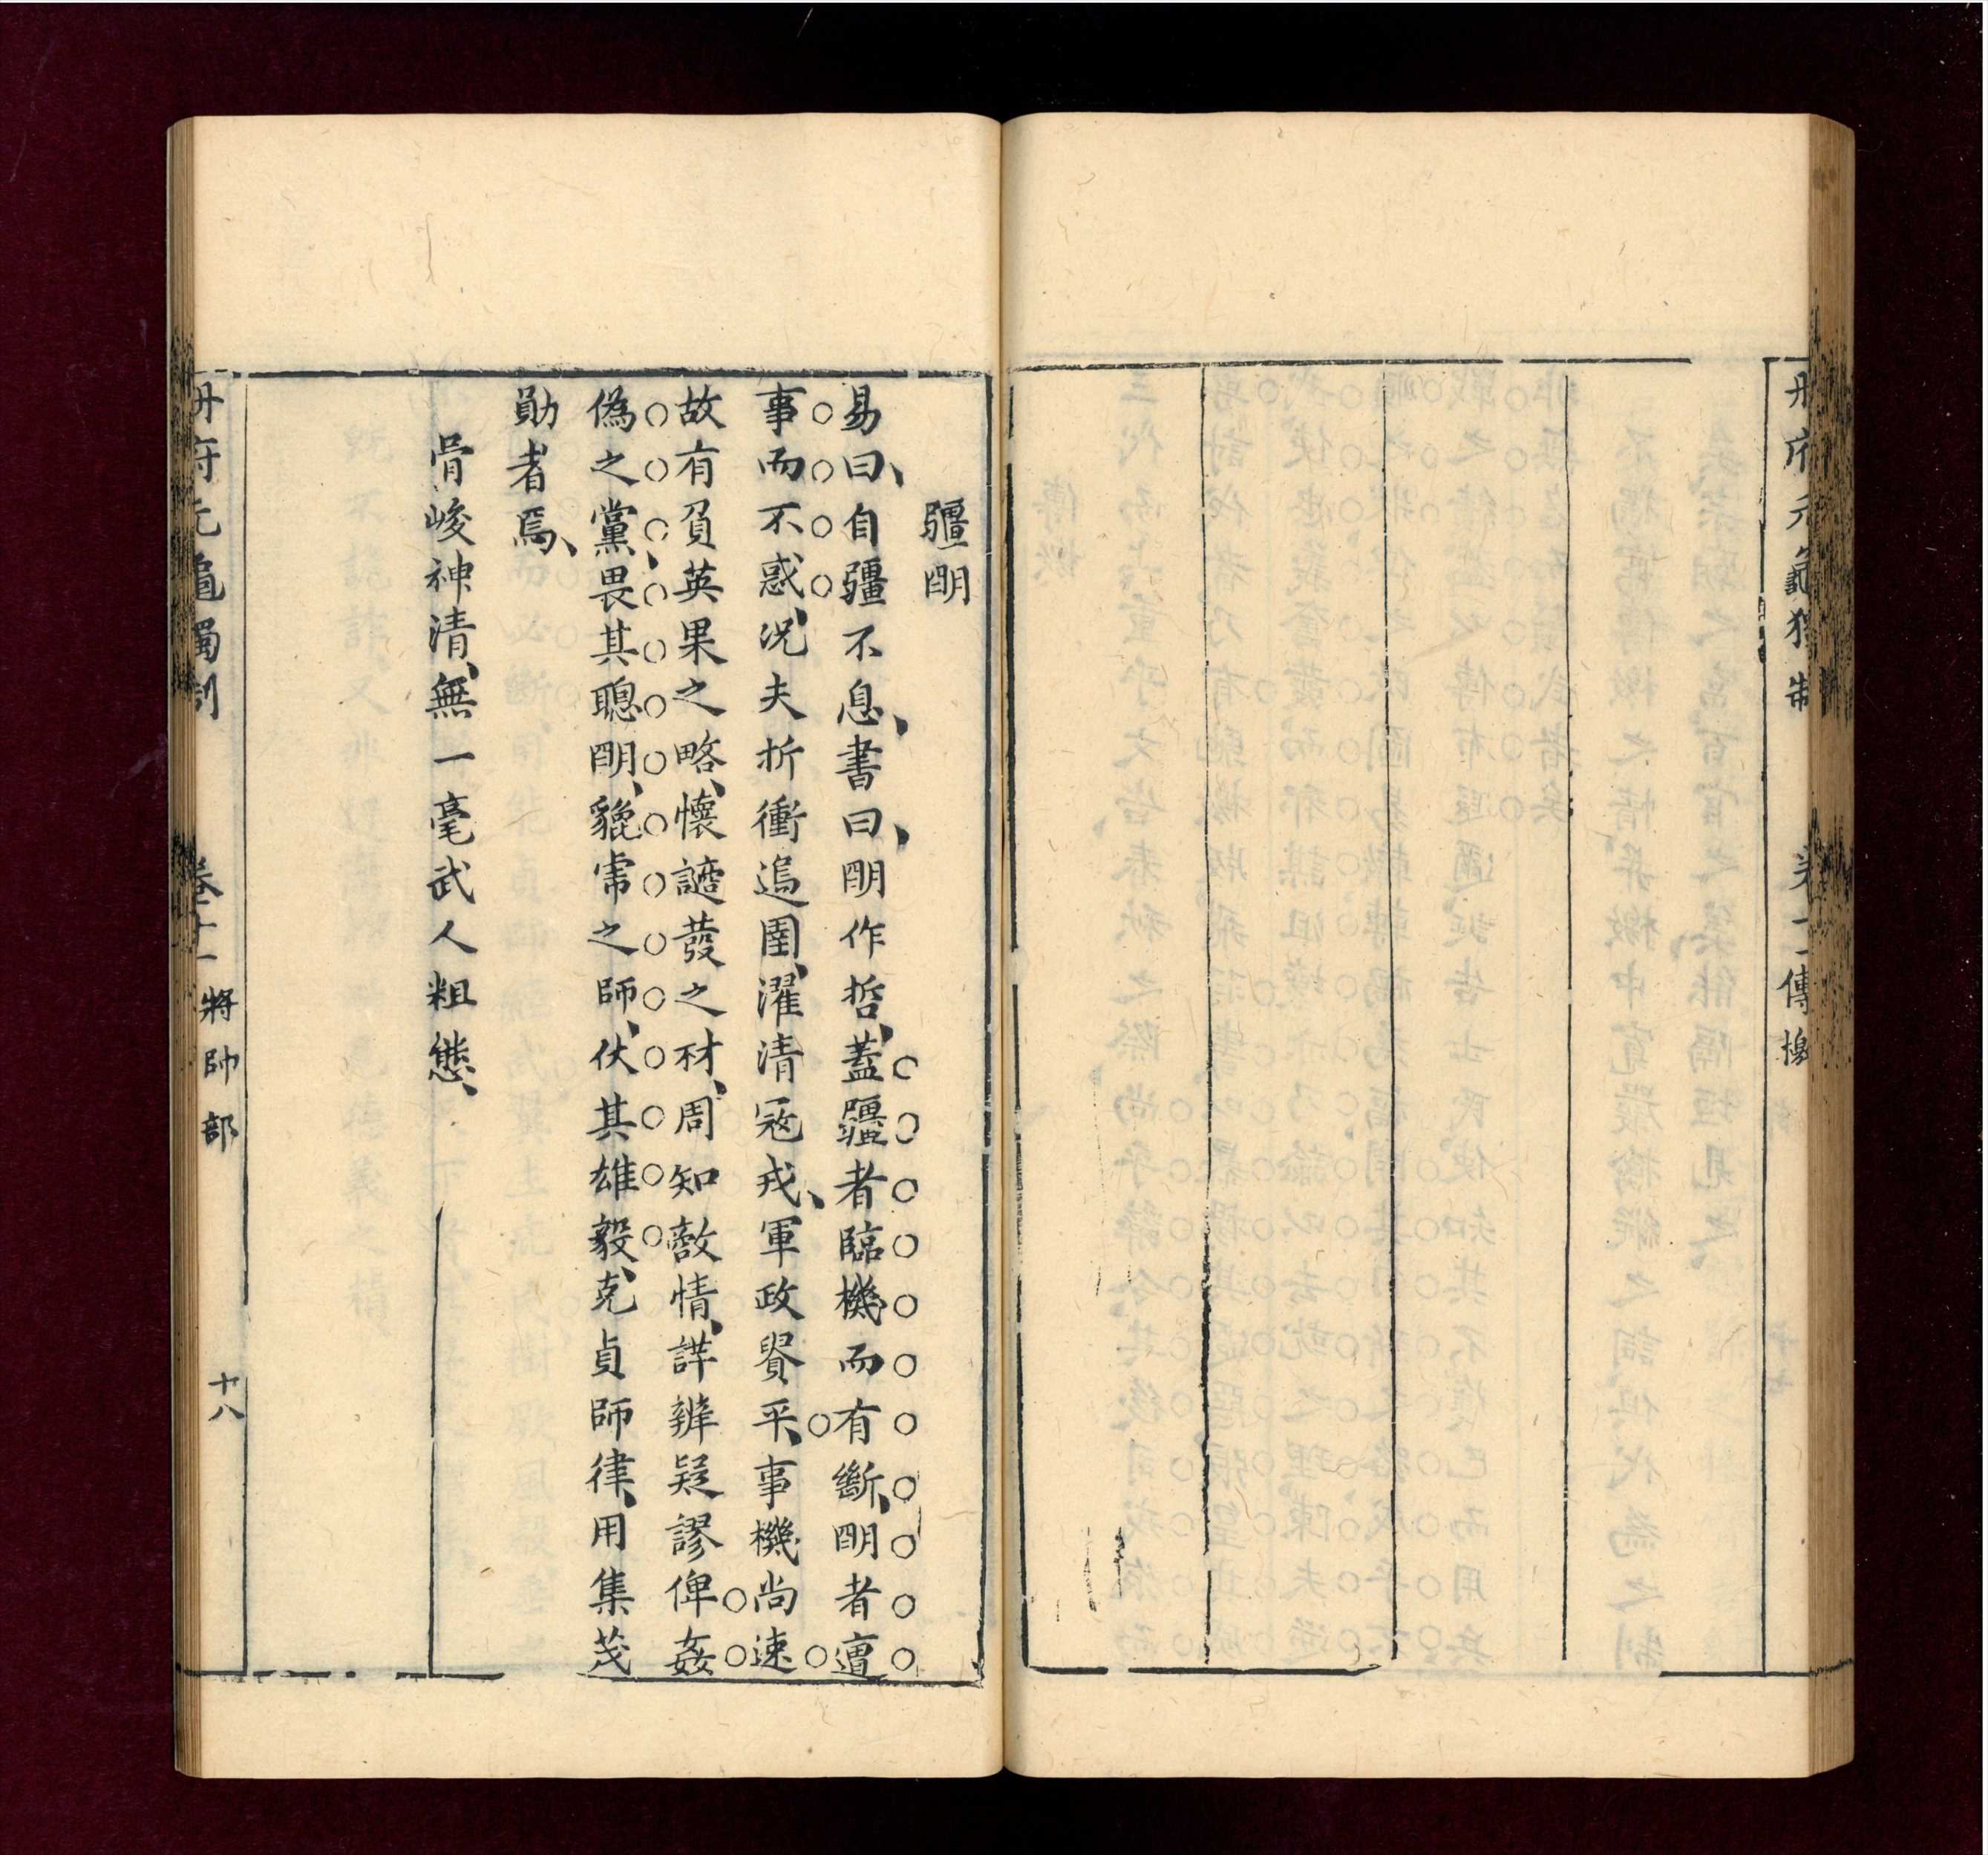 冊府元龜獨制
卷十一傳檄
疆明
易曰、自疆不息、書曰、明作哲、蓋疆者臨機而有斷、明者遭
事而不惑、況夫折衝塢邊圉、濯清寇戎、軍政貴平、事機尚速
故有負英果之略、懷謶發之材、周知敵情、詳辨疑謬俾姦
偽之黨、畏其聰明、貔虎之師、伏其雄毅、克貞師律、用集茂
勛者焉、
骨峻神清、無一毫武人粗態、
冊府元龜獨制
卷十一將帥部
十八